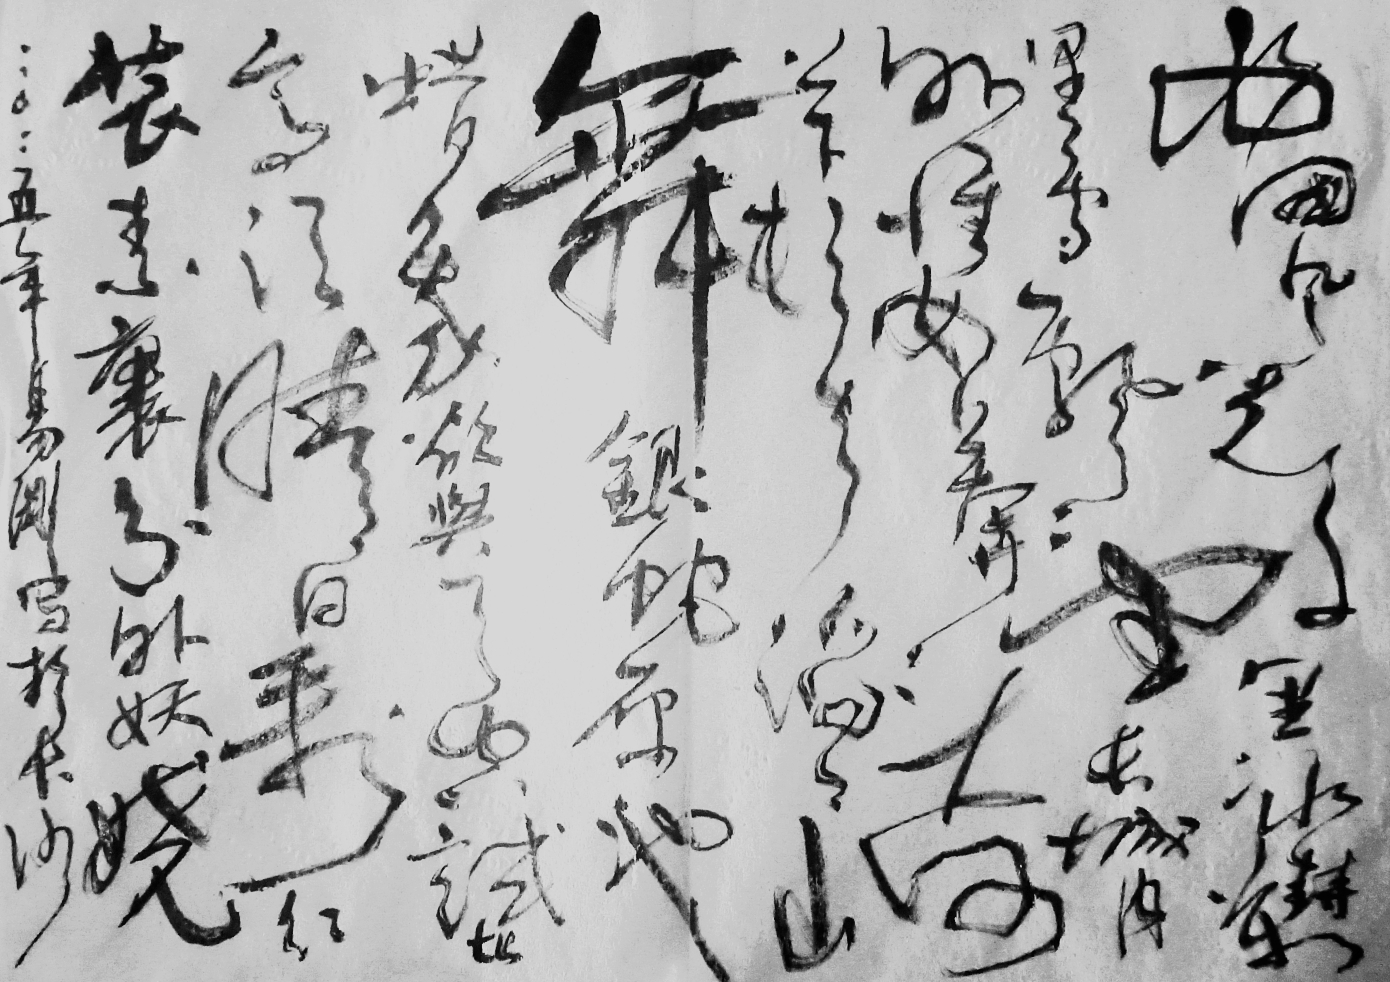 北國風光千里冰封萬
里雪飄望长城内
外惟余莽莽大河
上下顿失滔滔山
舞銀蛇原驰
蜡象欲與天公試比
高须晴日看红
装素裹分外妖娆
二〇一五年易剛写於长沙